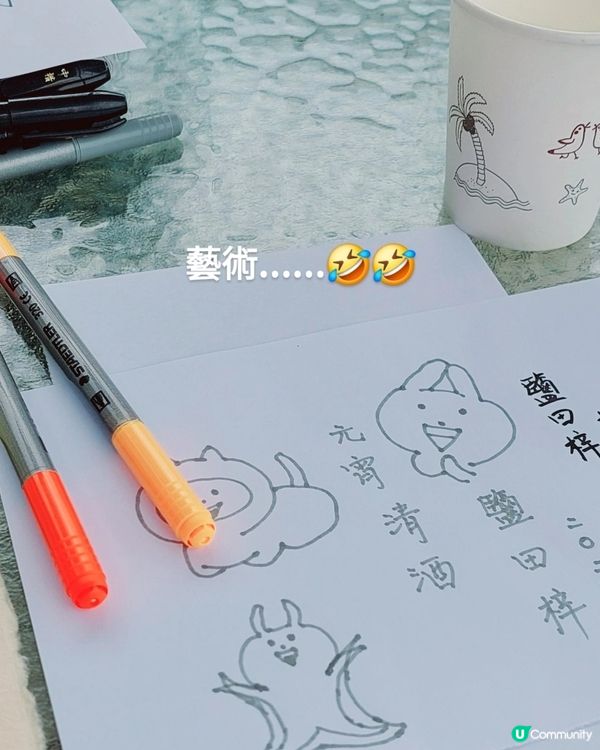 中楷
藝術......🤣🤣
STAEDTLER
元宵清酒
鹽田梓
鹽田梓
U Community